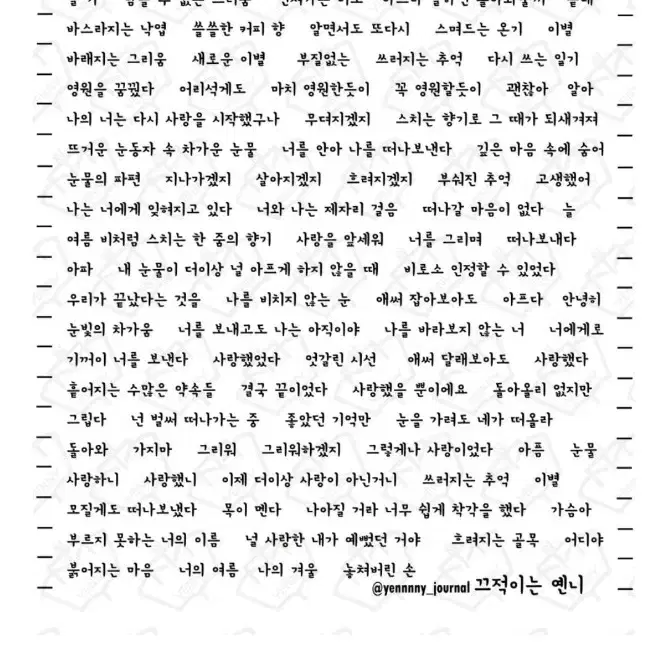 바스라지는 낙엽 쓸쓸한 커피 향 알면서도 또다시 스며드는 온기 이별
바래지는 그리움 새로운 이별 부질없는 쓰러지는 추억 다시 쓰는 일기
영원을 꿈꿨다 어리석게도 마치 영원한듯이 꼭 영원할듯이 괜찮아 알아
나의 너는 다시 사랑을 시작했구나 무뎌지겠지 스치는 향기로 그 때가 되새겨져
뜨거운 눈동자 속 차가운 눈물 너를 안아 나를 떠나보낸다 깊은 마음 속에 숨어
눈물의 파편 지나가겠지 살아지겠지 흐려지겠지 부숴진 추억 고생했어
나는 너에게 잊혀지고 있다 너와 나는 제자리 걸음 떠나갈 마음이 없다 늘
여름 비처럼 스치는 한 줌의 향기 사랑을 앞세워 너를 그리며 떠나보내다
아파 내 눈물이 더이상 널 아프게 하지 않을 때 비로소 인정할 수 있었다
우리가 끝났다는 것을 나를 비치지 않는 눈 애써 잡아보아도 아프다 안녕히
눈빛의 차가움 너를 보내고도 나는 아직이야 나를 바라보지 않는 너 너에게로
기꺼이 너를 보낸다 사랑했었다 엇갈린 시선 애써 달래보아도 사랑했다
흩어지는 수많은 약속들 결국 끝이었다 사랑했을 뿐이에요 돌아올리 없지만
그립다 넌 벌써 떠나가는 중 좋았던 기억만 눈을 가려도 네가 떠올라
돌아와 가지마 그리워 그리워하겠지 그렇게나 사랑이었다 아픔 눈물
사랑하니 사랑했니 이제 더이상 사랑이 아닌거니 쓰러지는 추억 이별
모질게도 떠나보냈다 목이 멘다 나아질 거라 너무 쉽게 착각을 했다 가슴아
부르지 못하는 너의 이름 널 사랑한 내가 예뻤던 거야 흐려지는 골목 어디야
붉어지는 마음 너의 여름 나의 겨울 놓쳐버린 손
@yennnny_journal 끄적이는 옌니